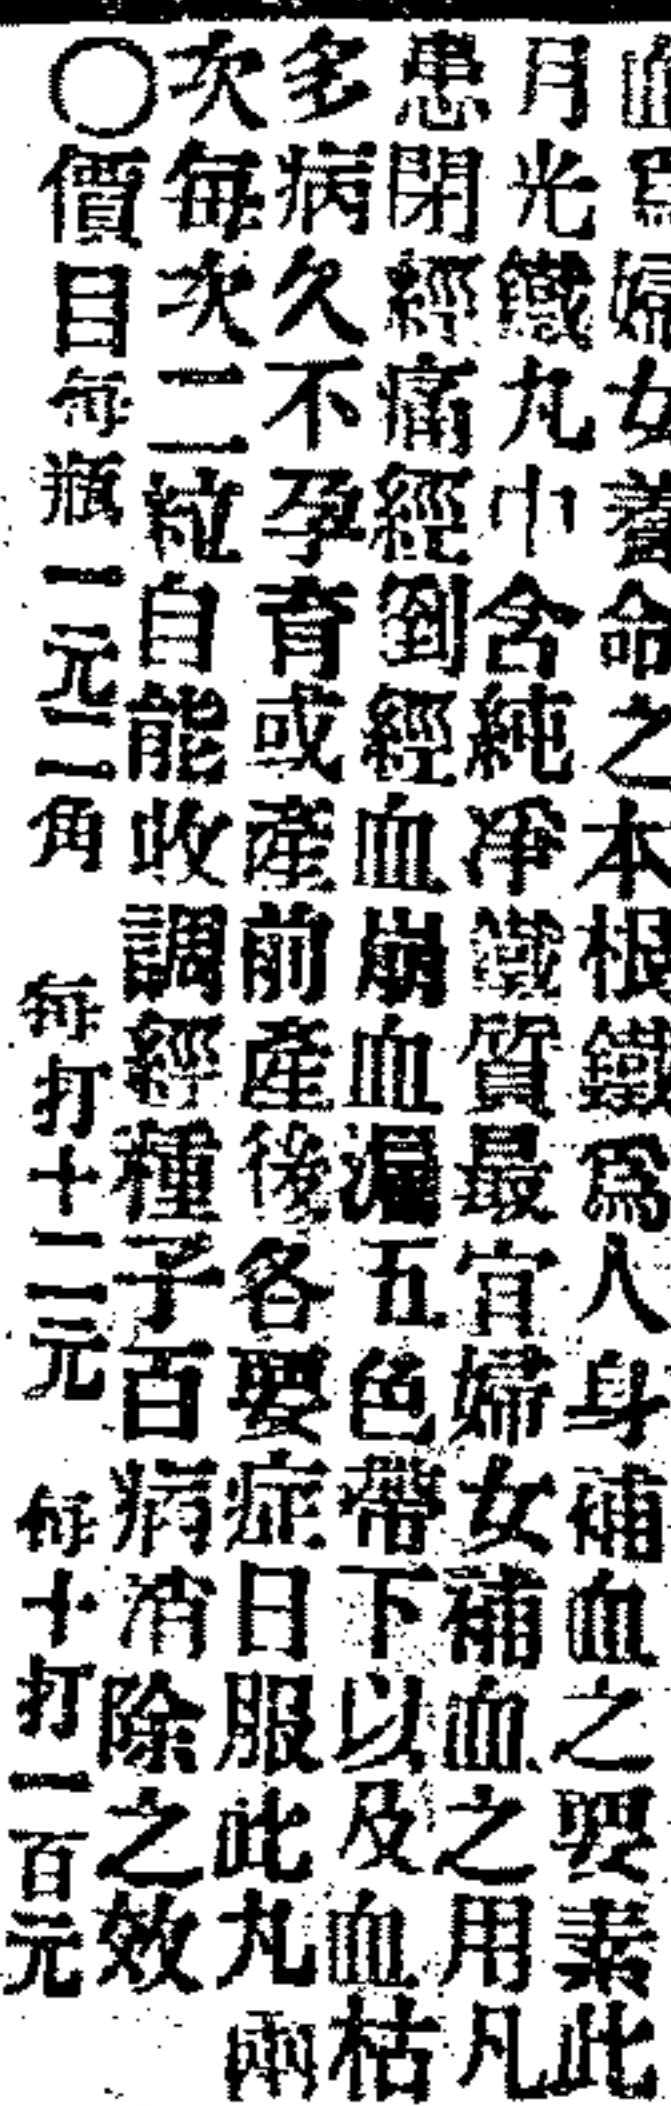 血爲婦女養命之本根鐵爲人身補血之要素此
月光鐵丸中含純凈鐵質最宜婦女補血之用凡
患閉經痛經到經血崩血漏五色帶下以及血枯
多病久不孕育或產前產後各要症日服此丸兩
次每次二粒自能收調經種子百病消除之效
〇價目每瓶一元二角 每打十二元 每十打一百元